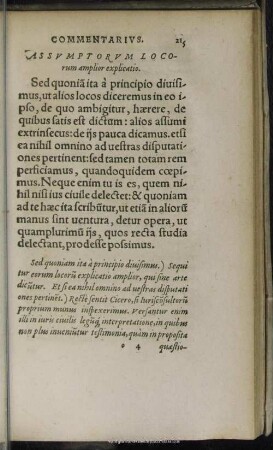 COMMENTARIVS. 215
ASSVMPTORVM LOCO-
rum amplior explicatio.
Sed quoniã ita à principio diuisi-
mus, ut alios locos diceremus in eo i
pso, de quo ambigitur, hærere, de
quibus satis est dictum: alios assumi
extrinsecus: de ijs pauca dicamus. etsi
ea nihil omnino ad uestras disputati
ones pertinent: sed tamen totam rem
perficiamus, quandoquidem cœpi-
mus. Neque enim tu is es, quem ni-
hil nisi ius ciuile delectet: & quoniam
ad te hæc ita scribũtur, ut etiã in aliorũ
manus sint uentura, detur opera, ut
quamplurimũ ijs, quos recta studia
delectant, prodesse possimus.
Sed quoniam ita à principio diuisimus.) Sequi
tur eorum locorũ explicatio amplior, qui sine arte
dicũtur. Etsi ea nihil omnino ad uestras disputati
ones pertinẽt.) Rectè sentit Cicero, si Iurisconsultorũ
proprium munus inspexerimus. Versantur enim
illi in iuris ciuilis legũq́; interpretatione, in quibus
non plus inueniũtur testimonia, quàm in proposita
o 4 quæstio-